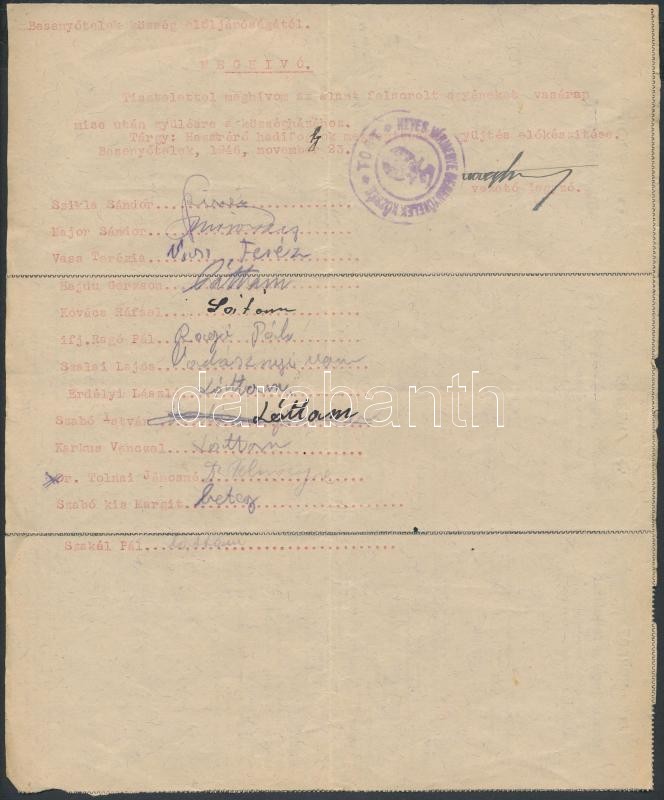 Besenyőtelek község elöljáróságától.
MEGHIVÓ.
Tisztelettel meghivom az alant felsorolt egyéneket vasárnap
mise után gyülésre a községházához.
Tárgy: Hazatérő hadifoglyok gyüjtés előkészitése.
Besenyőtelek, 1946, november 23.
HEVES VÁRMEGYE BESENYŐTELEK KÖZSÉG
vezető jegyző.
Szikla Sándor
Major Sándor
Vass Terézia Vass Teréz
Hajdu Gerzson Láttam
Kovács Ráfael Látam
ifj.Ragó Pál Ragó Pál
Szalai Lajos
Erdélyi László Láttam
Szabó István Láttam
Karkus Venczel Láttam
Dr. Tolnai Jánosné
Szabó kis Margit beteg
Szakál Pál Láttam
darabanth